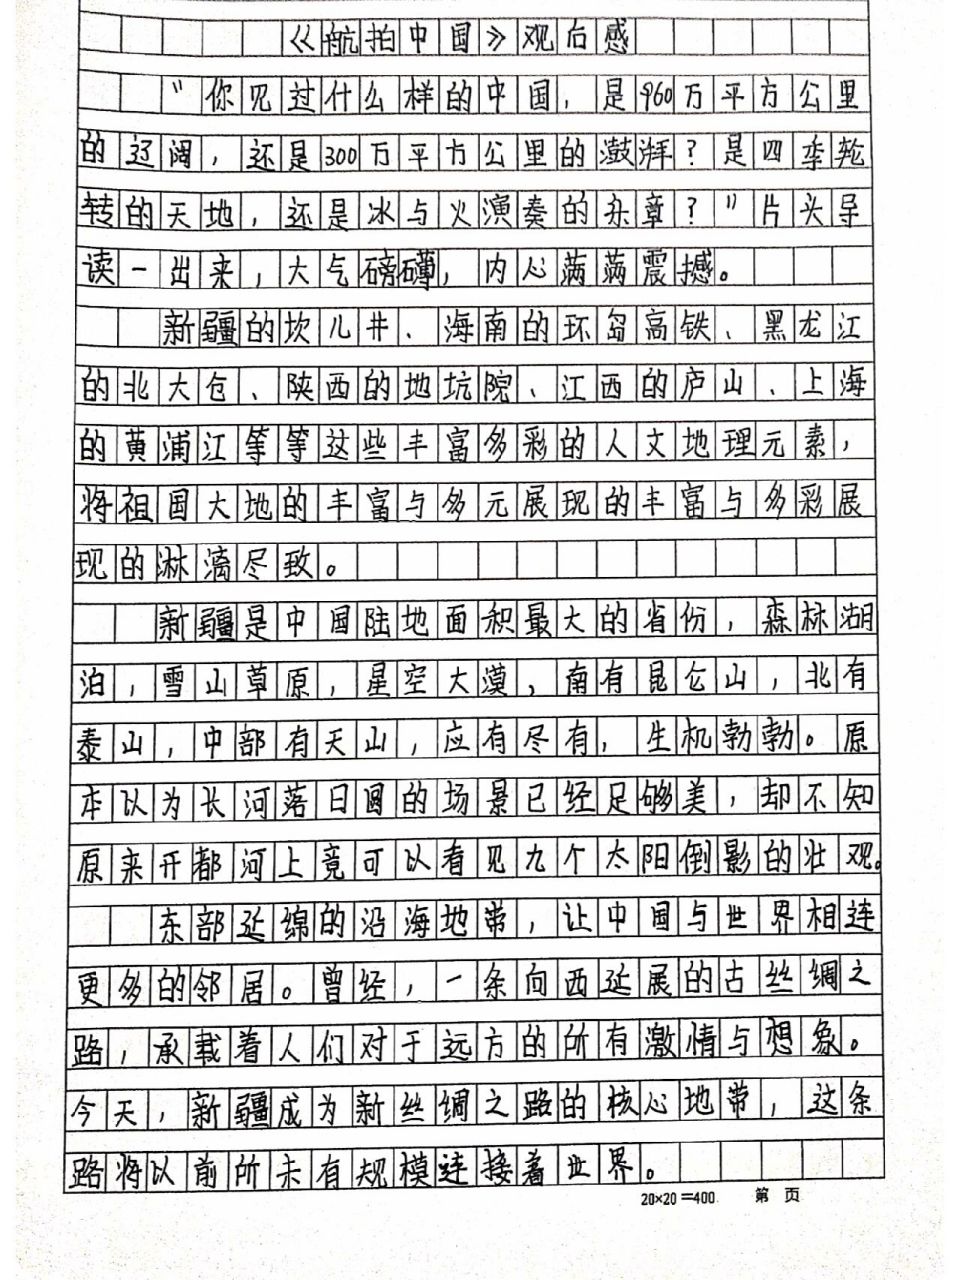 《航拍中国》观后感
"你见过什么样的中国，是960万平方公里
的辽阔，还是300万平方公里的澎湃？是四季轮
转的天地，还是冰与火演奏的乐章？"片头导
读一出来，大气磅礴，内心满满震撼。
新疆的坎儿井、海南的环岛高铁、黑龙江
的北大仓、陕西的地坑院、江西的庐山、上海
的黄浦江等等这些丰富多彩的人文地理元素，
将祖国大地的丰富与多元展现的丰富与多彩展
现的淋漓尽致。
新疆是中国陆地面积最大的省份，森林湖
泊，雪山草原，星空大漠，南有昆仑山，北有
泰山，中部有天山，应有尽有，生机勃勃。原
本以为长河落日圆的场景已经足够美，却不知
原来开都河上竟可以看见九个太阳倒影的壮观。
东部延绵的沿海地带，让中国与世界相连
更多的邻居。曾经，一条向西延展的古丝绸之
路，承载着人们对于远方的所有激情与想象。
今天，新疆成为新丝绸之路的核心地带，这条
路将以前所未有规模连接着世界。
20×20=400 第 页